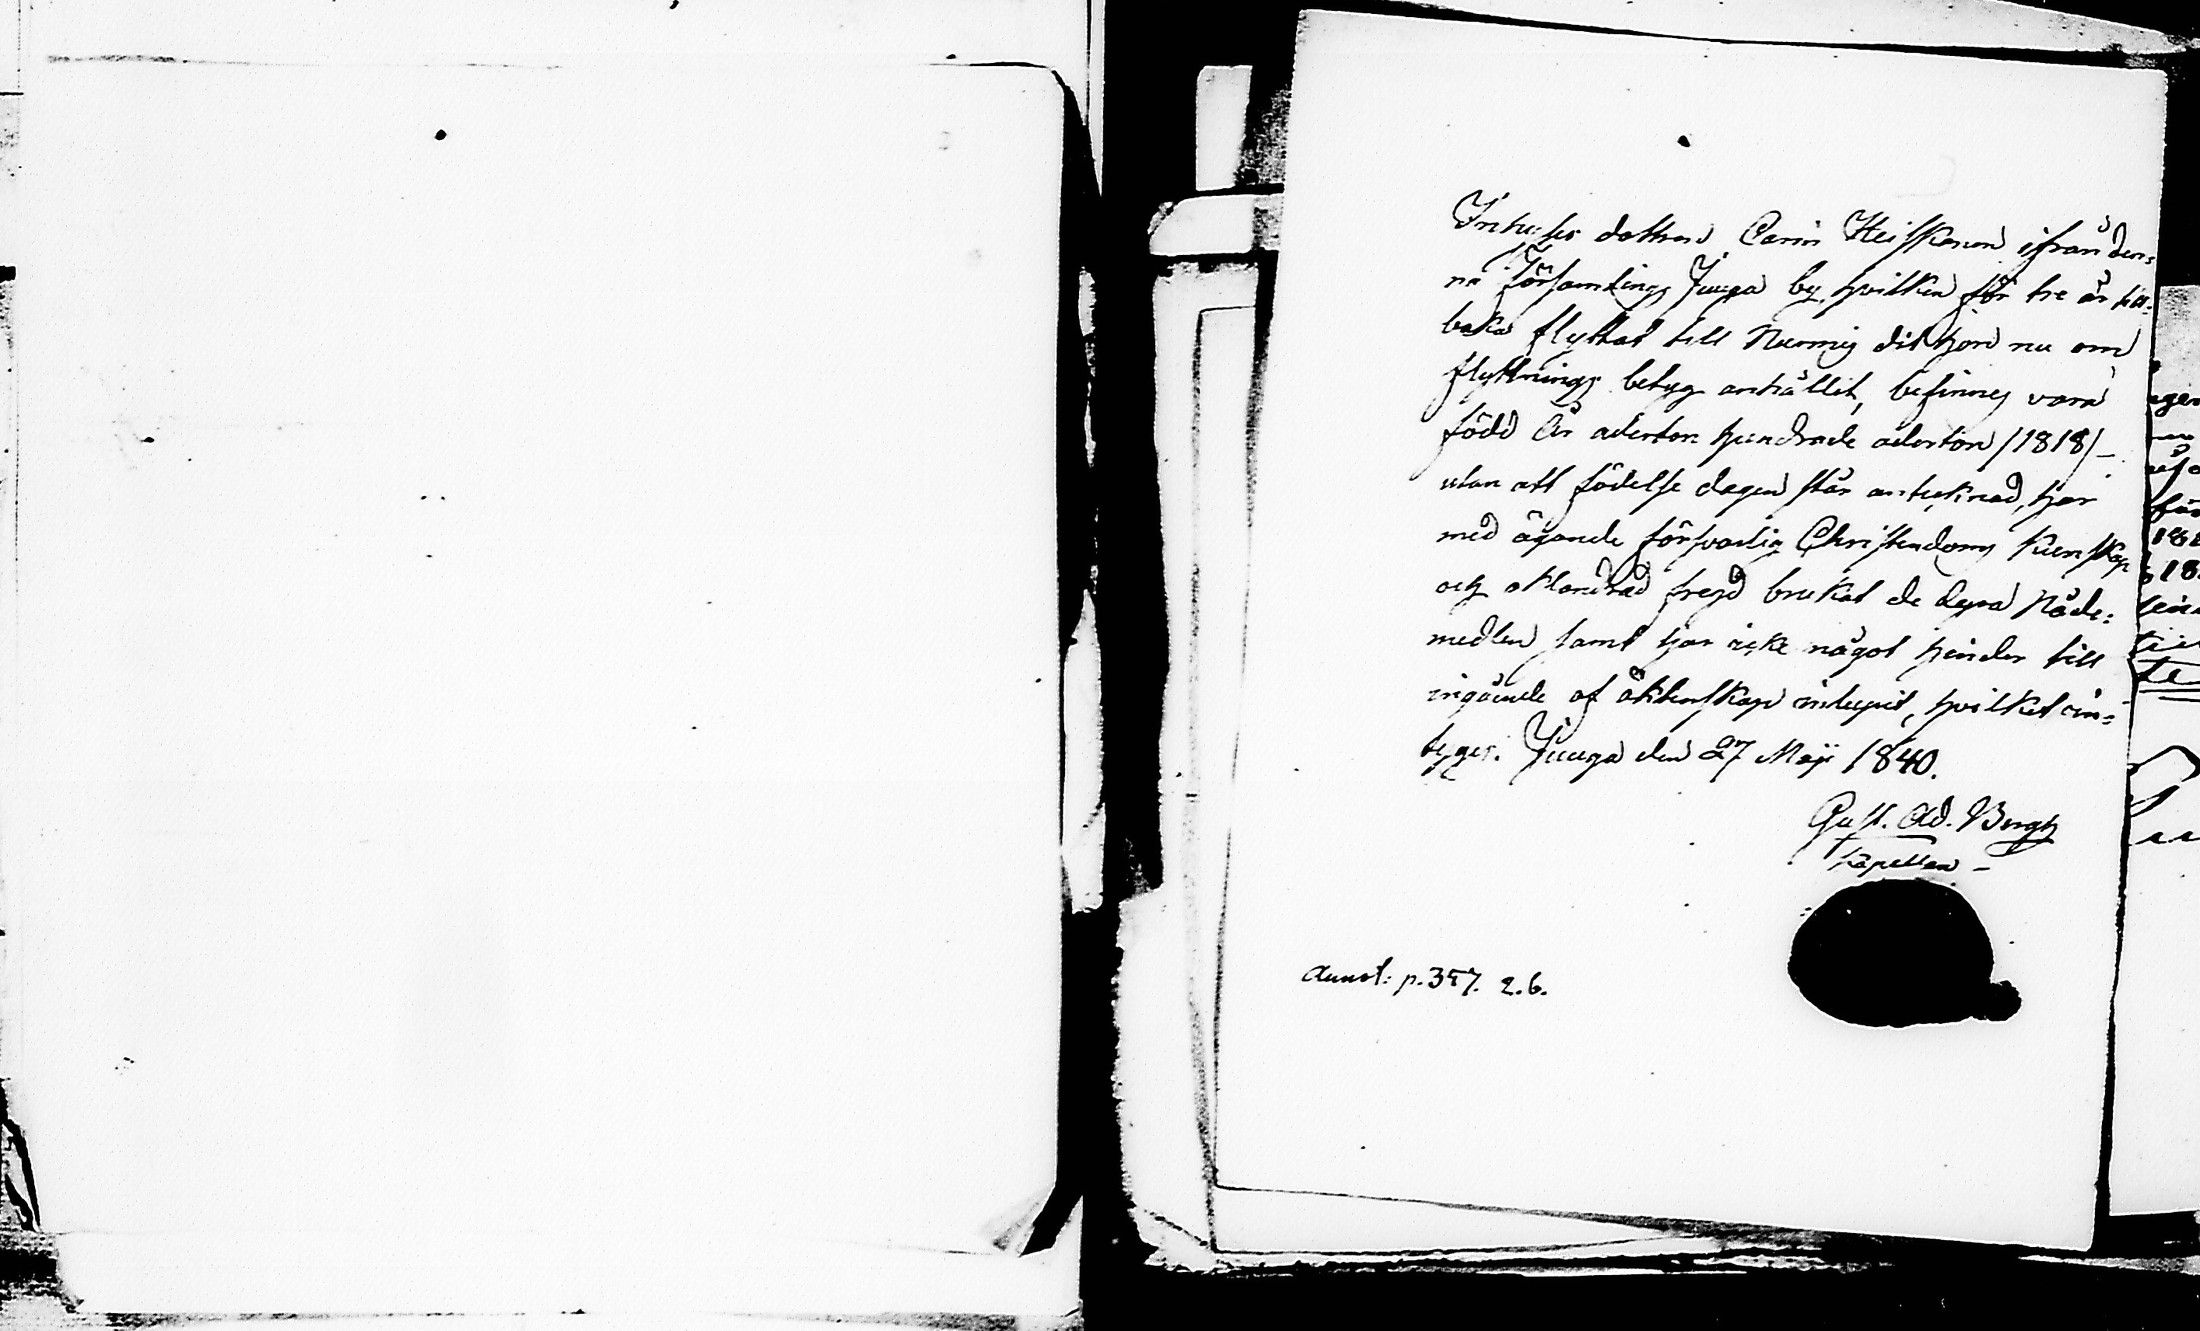 Inhyses dottern Carin Heiskanen ifrån den-
na Församlings Juuga by, hvilken för tre år till-
baka flyttat till Nurmis dit hon nu om
flyttnings betyg anhållit, befinnes vara
född År aderton hundrade aderton /1818/ -
utan att födelse dagen står antecknad, har
med ägande försvarlig Christendoms kunskap
och oklandrad frejd brukat de dyra Nåde-
medlen samt har icke något hinder till
ingående af äktenskap inlupit, hvilket in-
tygas. Juuga den 27 Maji 1840.
Gust. Ad. Bergh
Kapellan -
Annot: p. 357. 2.6.